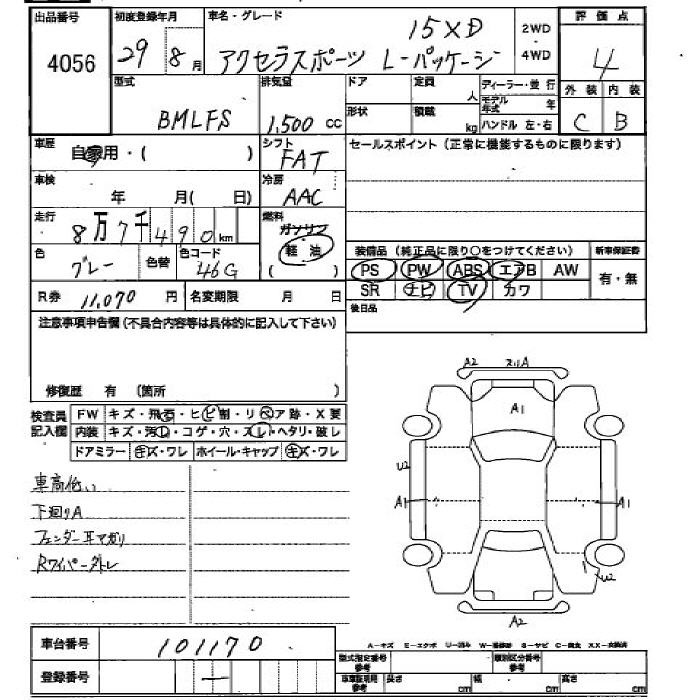 出品番号 初度登録年月 車名・グレード 評価点
4056 29 8月 アクセラスポーツ 15XD L-パッケージ 2WD・4WD 4
型式 排気量 ドア 定員 人 ディーラー・並行 外装 内装
BMLFS 1,500cc 形状 積載 kg モデル年式 年 ハンドル 左・右 C B
車歴 自家用・( ) シフト FAT セールスポイント (正常に機能するものに限ります)
車検 年 月( 日) 冷房 AAC
走行 8万7千490km 燃料 ガソリン 軽油 ( )
色 グレー 色替 色コード 46G
装備品 (純正品に限り○をつけてください) 新車保証書
PS PW ABS エアB AW 有・無
SR ナビ TV カワ
R券 11,070円 名変期限 月 日 後日品
注意事項申告欄 (不具合内容等は具体的に記入して下さい)
修復歴 有 (箇所 )
検査員記入欄 FW キズ・飛石・ヒビ割・リペア跡・X要
内装 キズ・汚れ・コゲ・穴・スレ・ヘタリ・破レ
ドアミラー キズ・ワレ ホイール・キャップ キズ・ワレ
車高低い
下廻りA
フェンダー耳マガリ
Rワイパー外レ
A2 スリA
A1
U2
A1 A1
U2
A2
車台番号 101170
登録番号 —
A-キズ E-エクボ U-凹み W-補修跡 S-サビ C-腐食 XX-交換済
型式指定番号 参考 類別区分番号 参考
車庫証明用 参考 長さ cm 幅 cm 高さ cm